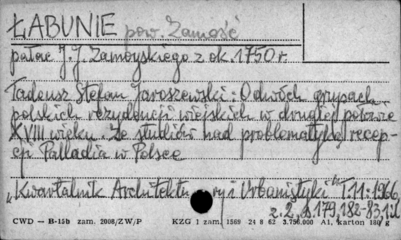 ŁABUNIE pow. Zamość
pałac J.J. Zamoyskiego z ok. 1750 r.
Tadeusz Stefan Jaroszewski: O dwóch grupach
polskich rezydencji wiejskich w drugiej połowie
XVIII wieku. Ze studiów nad problematyką recep-
cji Palladia w Polsce
„Kwartalnik Architektury i Urbanistyki" T.11:1966
z. 2, s. 179, 182-83, il.
CWD — B-15b zam. 2008/ZW/P KZG 1 zam. 1569 24 8 62 3.750.000 A1, karton 180 g